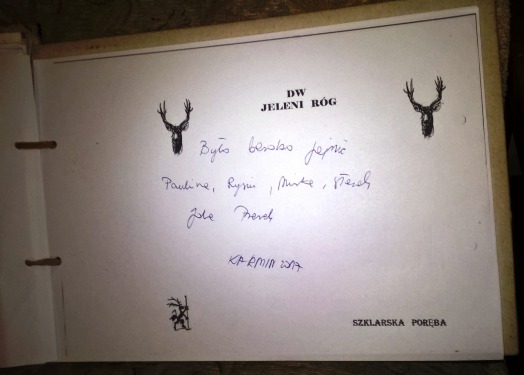 DW
JELENI RÓG
Było bardzo fajnie
Paulina, Rysiu, Mirka, Stach
Jola
KARMIN 2017
SZKLARSKA PORĘBA